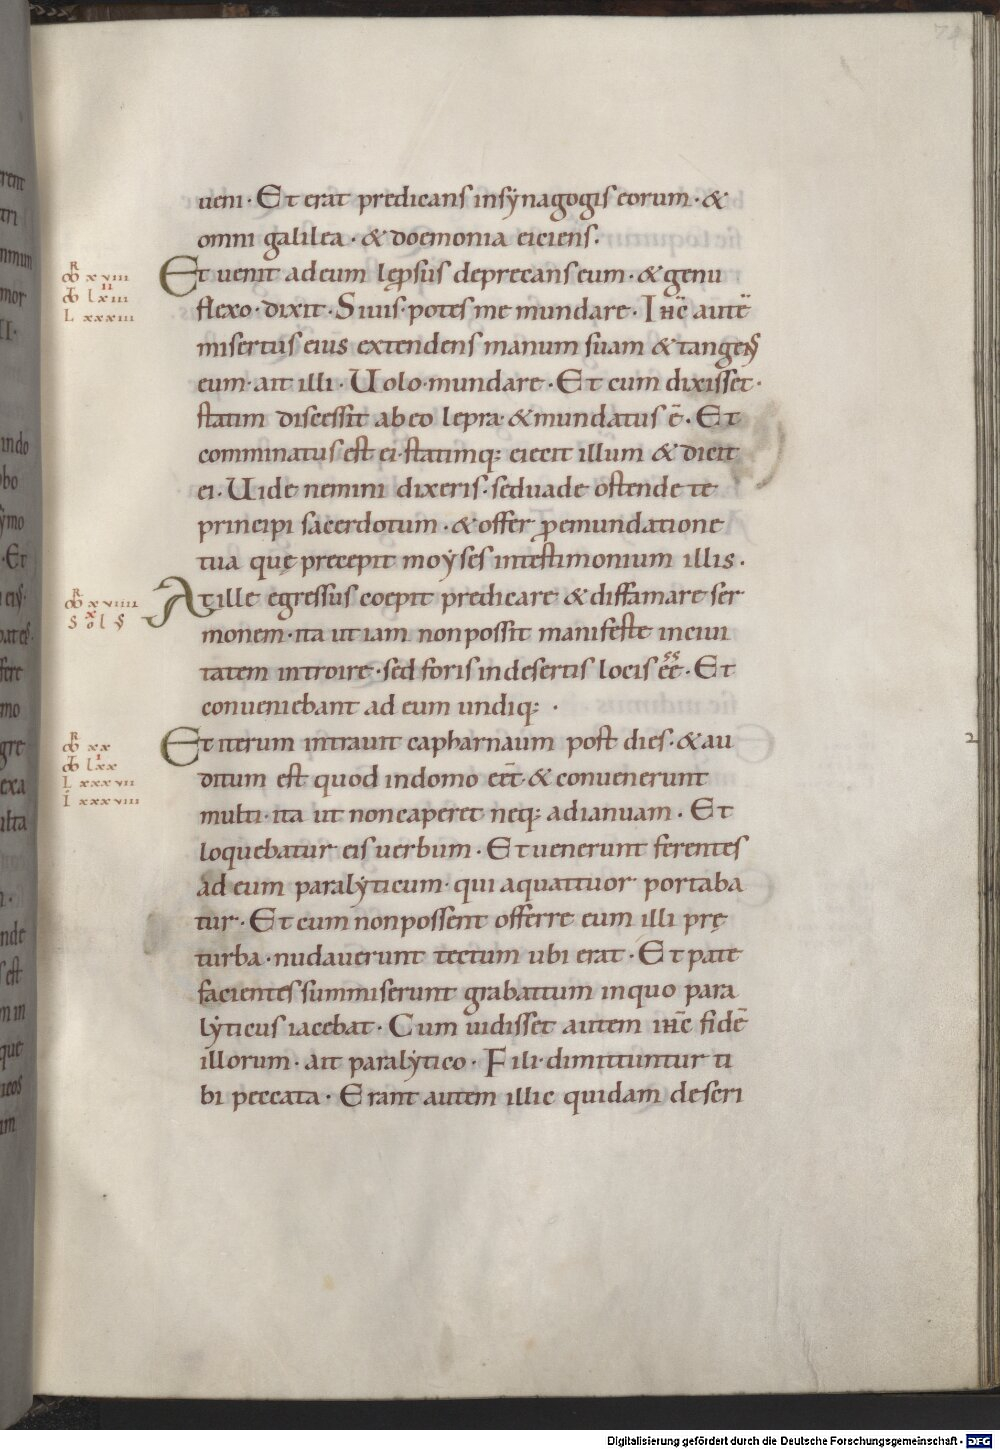 74
ueni · Et erat predicans insÿnagogis eorum · &
omni galilea · & doemonia eiciens .
Et uenit adeum lęprosus deprecans eum · & genu
flexo · dixit · Siuis · potes me mundare · Ihc̄ autē
misertus eius extendens manum suam & tangens
eum · ait illi · Uolo · mundare · Et cum dixisset ·
statim discessit abeo lepra · & mundatus ē · Et
comminatus est ei · statimq; eiecit illum & dicit
ei · Uide nemini dixeris · seduade ostende te
principi sacerdotum · & offer ꝓemundatione
tua quę precepit moÿses intestimonium illis .
At ille egressus coepit predicare & diffamare ser
monem · ita ut iam non possit manifeste inciui
tatem introire · sed foris indesertis locis ēē · Et
conueniebant ad eum undiq; ·
Et iterum intrauit capharnaum post dies · & au
ditum est quod indomo eēt · & conuenerunt
multi · ita ut noncaperet neq; adianuam · Et
loquebatur eis uerbum · Et uenerunt ferentes
ad eum paralÿticum · qui aquattuor portaba
tur · Et cum nonpossent offerre eum illi prę
turba · nudauerunt tectum ubi erat · Et pate
facientes summiserunt grabattum inquo para
lÿticus iacebat · Cum uidisset autem ihc̄ fidē
illorum · ait paralÿtico · Fili · dimittuntur ti
bi peccata · Erant autem illic quidam descri
R
xviii
II
lxiii
L xxxiii
R
xviiii
x
R
xx
I
lxx
L xxxvii
I xxxviii
Digitalisierung gefördert durch die Deutsche Forschungsgemeinschaft - DFG